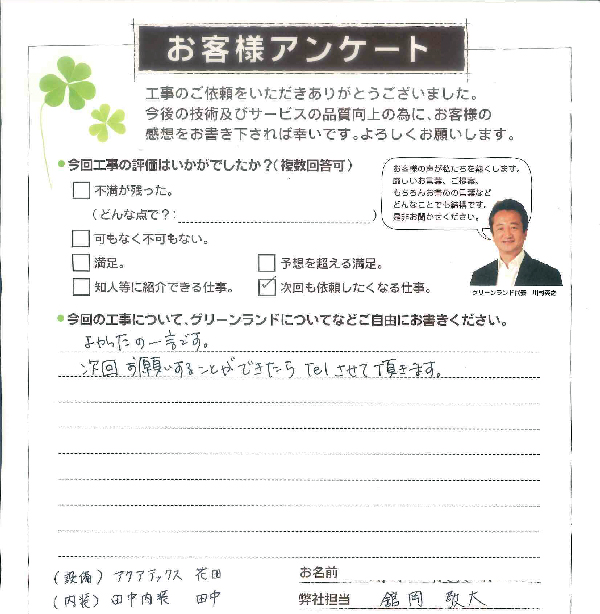 お客様アンケート
工事のご依頼をいただきありがとうございました。
今後の技術及びサービスの品質向上の為に、お客様の
感想をお書き下されば幸いです。よろしくお願いします。
●今回工事の評価はいかがでしたか?(複数回答可)
お客様の声が私たちを熱くします。
厳しいお言葉、ご提案、
もちろんお褒めの言葉など
どんなことでも結構です。
是非お聞かせください。
□ 不満が残った。
(どんな点で?: )
□ 可もなく不可もない。
□ 満足。 □ 予想を超える満足。
□ 知人等に紹介できる仕事。 ☑ 次回も依頼したくなる仕事。
グリーンランド代表
●今回の工事について、グリーンランドについてなどご自由にお書きください。
よかったの一言です。
次回お願いすることができたらTelさせて頂きます。
(設備) アクアテックス 花田
お名前
(内装) 田中内装 田中
弊社担当 舘岡 敬大